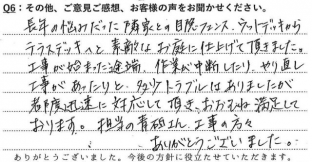 Q6：その他、ご意見ご感想、お客様の声をお聞かせください。
長年の悩みだった隣家との目隠フェンス、ウッドデッキから
テラスデッキへと素敵なお庭に仕上げて頂きました。
工事が始まった途端、作業が中断したり、やり直し
工事があったりと、多少トラブルはありましたが
都度迅速に対応して頂き、おおむね満足して
おります。担当の青稲さん、工事の方々
ありがとうございました。
ありがとうございました。今後の方針に役立たせていただきます。